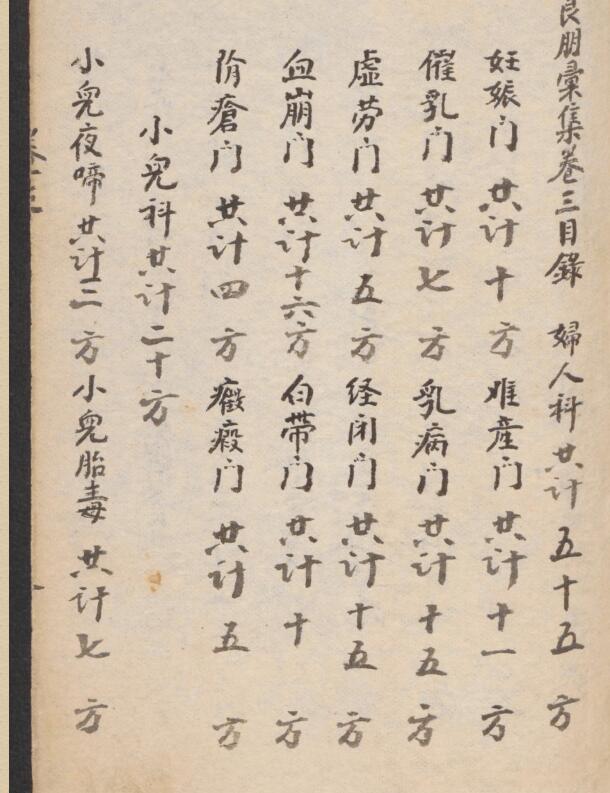 良朋彙集卷三目錄 婦人科共计五十五方
妊娠门共计十方 难產门共计十一方
催乳门共计七方 乳病门共计十五方
虛劳门共计五方 经闭门共计十五方
血崩门共计十六方 白带门共计十方
阴瘡门共计四方 癥瘕门共计五方
小兒科共计二十方
小兒夜啼共计三方 小兒胎毒共计七方